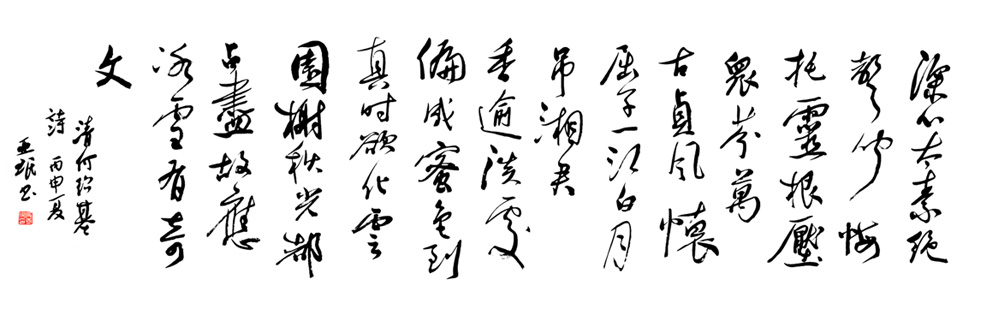 深心太素絕
聲聞悔
托靈根壓
眾芬萬
古貞風懷
屈子一江白月
吊湘君
香逾淡處
偏成蜜色到
真时欲化雲
園榭秋光都
占盡故應
冰雪有奇
文
清何紹基
詩 丙申夏
亚珉书